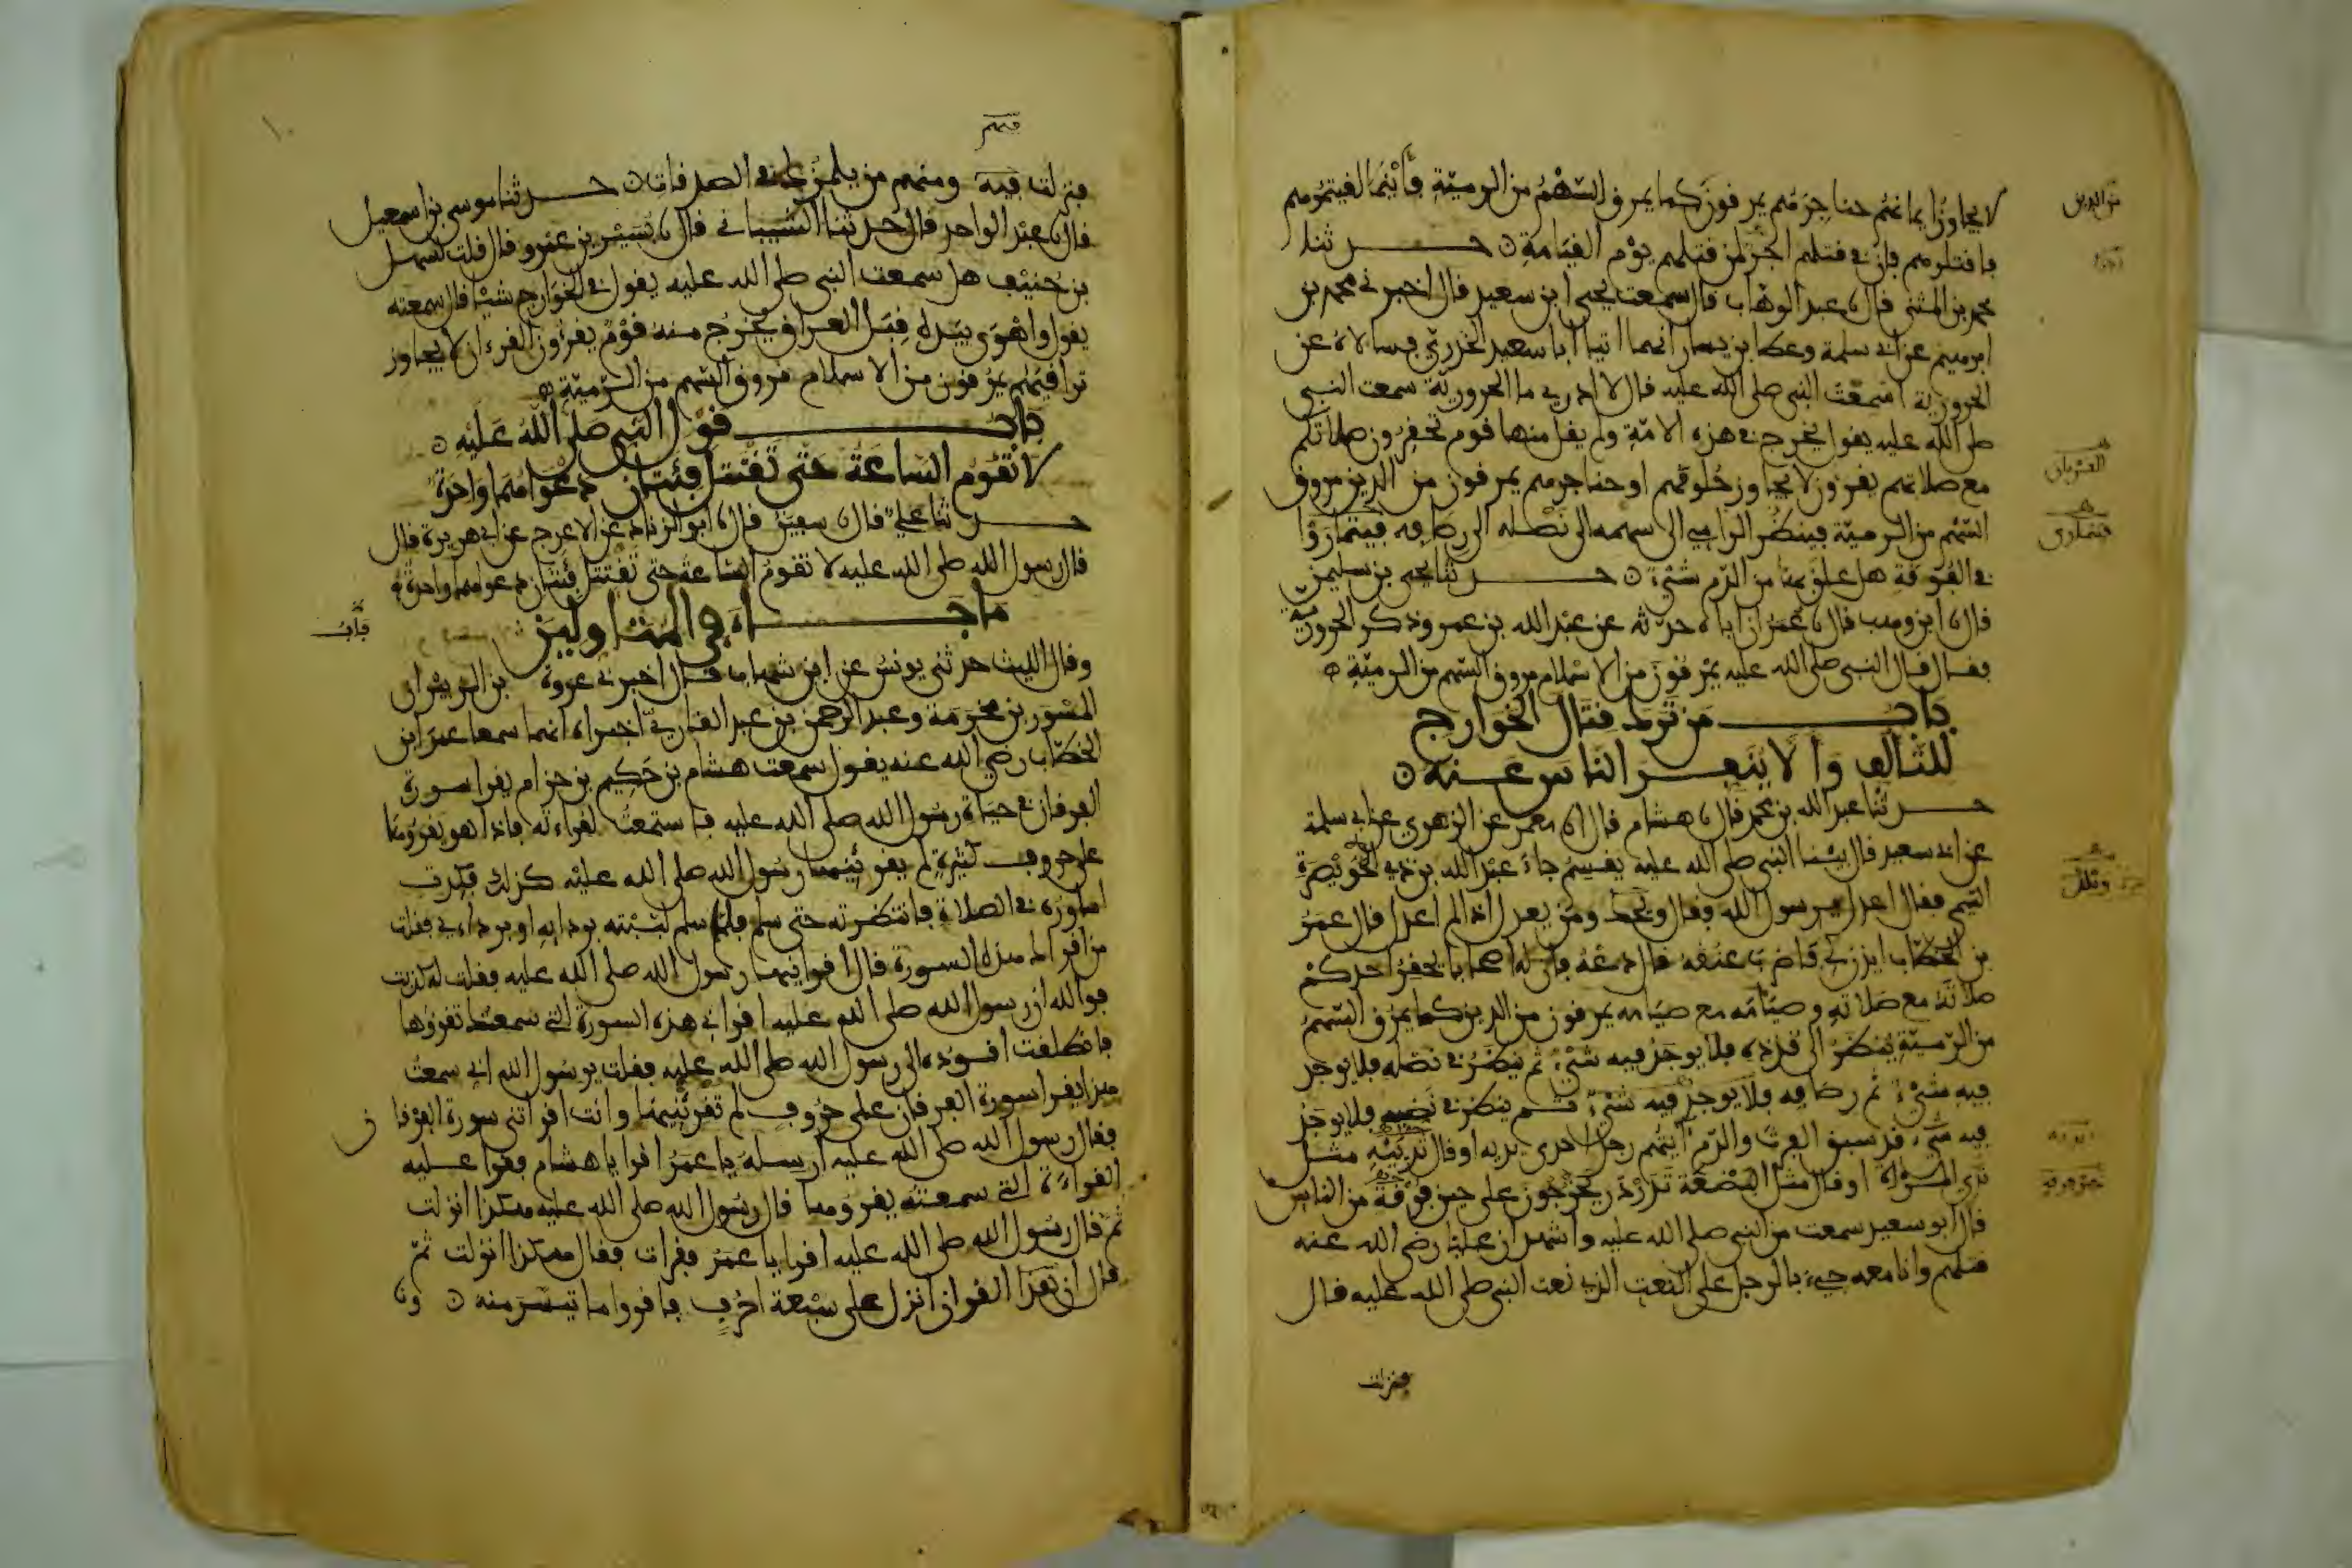 لا يجاوز إيمانهم حناجرهم يمرقون كما يمرق السهم من الرمية فأينما لقيتموهم
من الدين
فاقتلوهم فإن في قتلهم أجرًا لمن قتلهم يوم القيامة حدثنا
محمد بن المثنى قال نا عبد الوهاب قال سمعت يحيى ابن سعيد قال أخبرني محمد بن
ابرهيم عن أبي سلمة وعطا بن يسار أنهما أتيا أبا سعيد الخدري فسالاه عن
الحرورية أسمعت النبي صلى الله عليه قال لا أدري ما الحرورية سمعت النبي
صلى الله عليه يقول يخرج في هذه الأمة ولم يقل منها قوم تحقرون صلاتكم
مع صلاتهم يقرون لا يجاوز حلوقهم أو حناجرهم يمرقون من الدين مروق
القرءان
السهم من الرمية فينظر الرامي إلى سهمه إلى نصله إلى رصافه فيتماروا
فيتمارى
في الفوقة هل علق بها من الدم شيء حدثنا يحيى بن سليمن
قال نا ابن وهب قال نا عمر أن أباه حدثه عن عبد الله بن عمر وذكر الحرورية
فقال قال النبي صلى الله عليه يمرقون من الإسلام مروق السهم من الرمية
باب من ترك قتال الخوارج
للتألف وألا ينفر الناس عنه
حدثنا عبد الله بن محمد قال نا هشام قال انا معمر عن الزهري عن أبي سلمة
عن أبي سعيد قال بينا النبي صلى الله عليه يقسم جاء عبد الله بن ذي الخويصرة
التيمي فقال اعدل يرسول الله فقال ويحك ومن يعدل إذا لم أعدل قال عمر
ويلك
بن الخطاب ايذن لي فاضرب عنقه قال دعه فإن له أصحابا يحقر أحدكم
صلاته مع صلاته وصيامه مع صيامه يمرقون من الدين كما يمرق السهم
من الرمية ينظر إلى قذذه فلا يوجد فيه شيء ثم ينظر في نصله فلا يوجد
فيه شيء ثم رصافه فلا يوجد فيه شيء ثم ينظر في نضيه فلا يوجد
فيه شيء قد سبق الفرث والدم آيتهم رجل إحدى يديه أو قال ثدييه مثل
ثدي المرأة أو قال مثل البضعة تدردر يخرجون على حين فرقة من الناس
قال أبو سعيد سمعت من النبي صلى الله عليه وأشهد أن عليا رضي الله عنه
قتلهم وأنا معه جيء بالرجل على النعت الذي نعت النبي صلى الله عليه قال
فنزلت
فنزلت فيه ومنهم من يلمزك في الصدقات حدثنا موسى بن اسمعيل
قال نا عبد الواحد قال حدثنا الشيباني قال نا يسير بن عمرو قال قلت لسهل
بن حنيف هل سمعت النبي صلى الله عليه يقول في الخوارج شيئا قال سمعته
يقول وأهوى بيده قبل العراق يخرج منه قوم يقرؤن القرءان لا يجاوز
تراقيهم يمرقون من الإسلام مروق السهم من الرمية
باب قول النبي صلى الله عليه
لا تقوم الساعة حتى تقتتل فئتان دعواهما واحدة
حدثنا علي قال نا سفين قال نا أبو الزناد عن الأعرج عن أبي هريرة قال
قال رسول الله صلى الله عليه لا تقوم الساعة حتى تقتتل فئتان دعواهما واحدة
باب
ما جاء في المتأولين
وقال الليث حدثني يونس عن ابن شهاب قال أخبرني عروة بن الزبير أن
المسور بن مخرمة وعبد الرحمن بن عبد القاري أخبراه أنهما سمعا عمر ابن
الخطاب رضي الله عنه يقول سمعت هشام بن حكيم بن حزام يقرأ سورة
الفرقان في حياة رسول الله صلى الله عليه فاستمعت لقراءته فإذا هو يقرؤها
على حروف كثيرة لم يقرئنيها رسول الله صلى الله عليه كذلك فكدت
أساوره في الصلاة فانتظرته حتى سلم فلما سلم لببته بردايه أو بردايي فقلت
من أقرأك هذه السورة قال أقرأنيها رسول الله صلى الله عليه فقلت له كذبت
فوالله إن رسول الله صلى الله عليه أقرأني هذه السورة التي سمعتك تقرؤها
فانطلقت أقوده إلى رسول الله صلى الله عليه فقلت يرسول الله إني سمعت
هذا يقرأ سورة الفرقان على حروف لم تقرئنيها وأنت أقرأتني سورة الفرقان
فقال رسول الله صلى الله عليه أرسله يا عمر اقرأ يا هشام فقرأ عليه
القراءة التي سمعته يقرؤها قال رسول الله صلى الله عليه هكذا أنزلت
ثم قال رسول الله صلى الله عليه اقرأ يا عمر فقرأت فقال هكذا أنزلت ثم
قال إن هذا القرآن أنزل على سبعة أحرف فاقرءوا ما تيسر منه